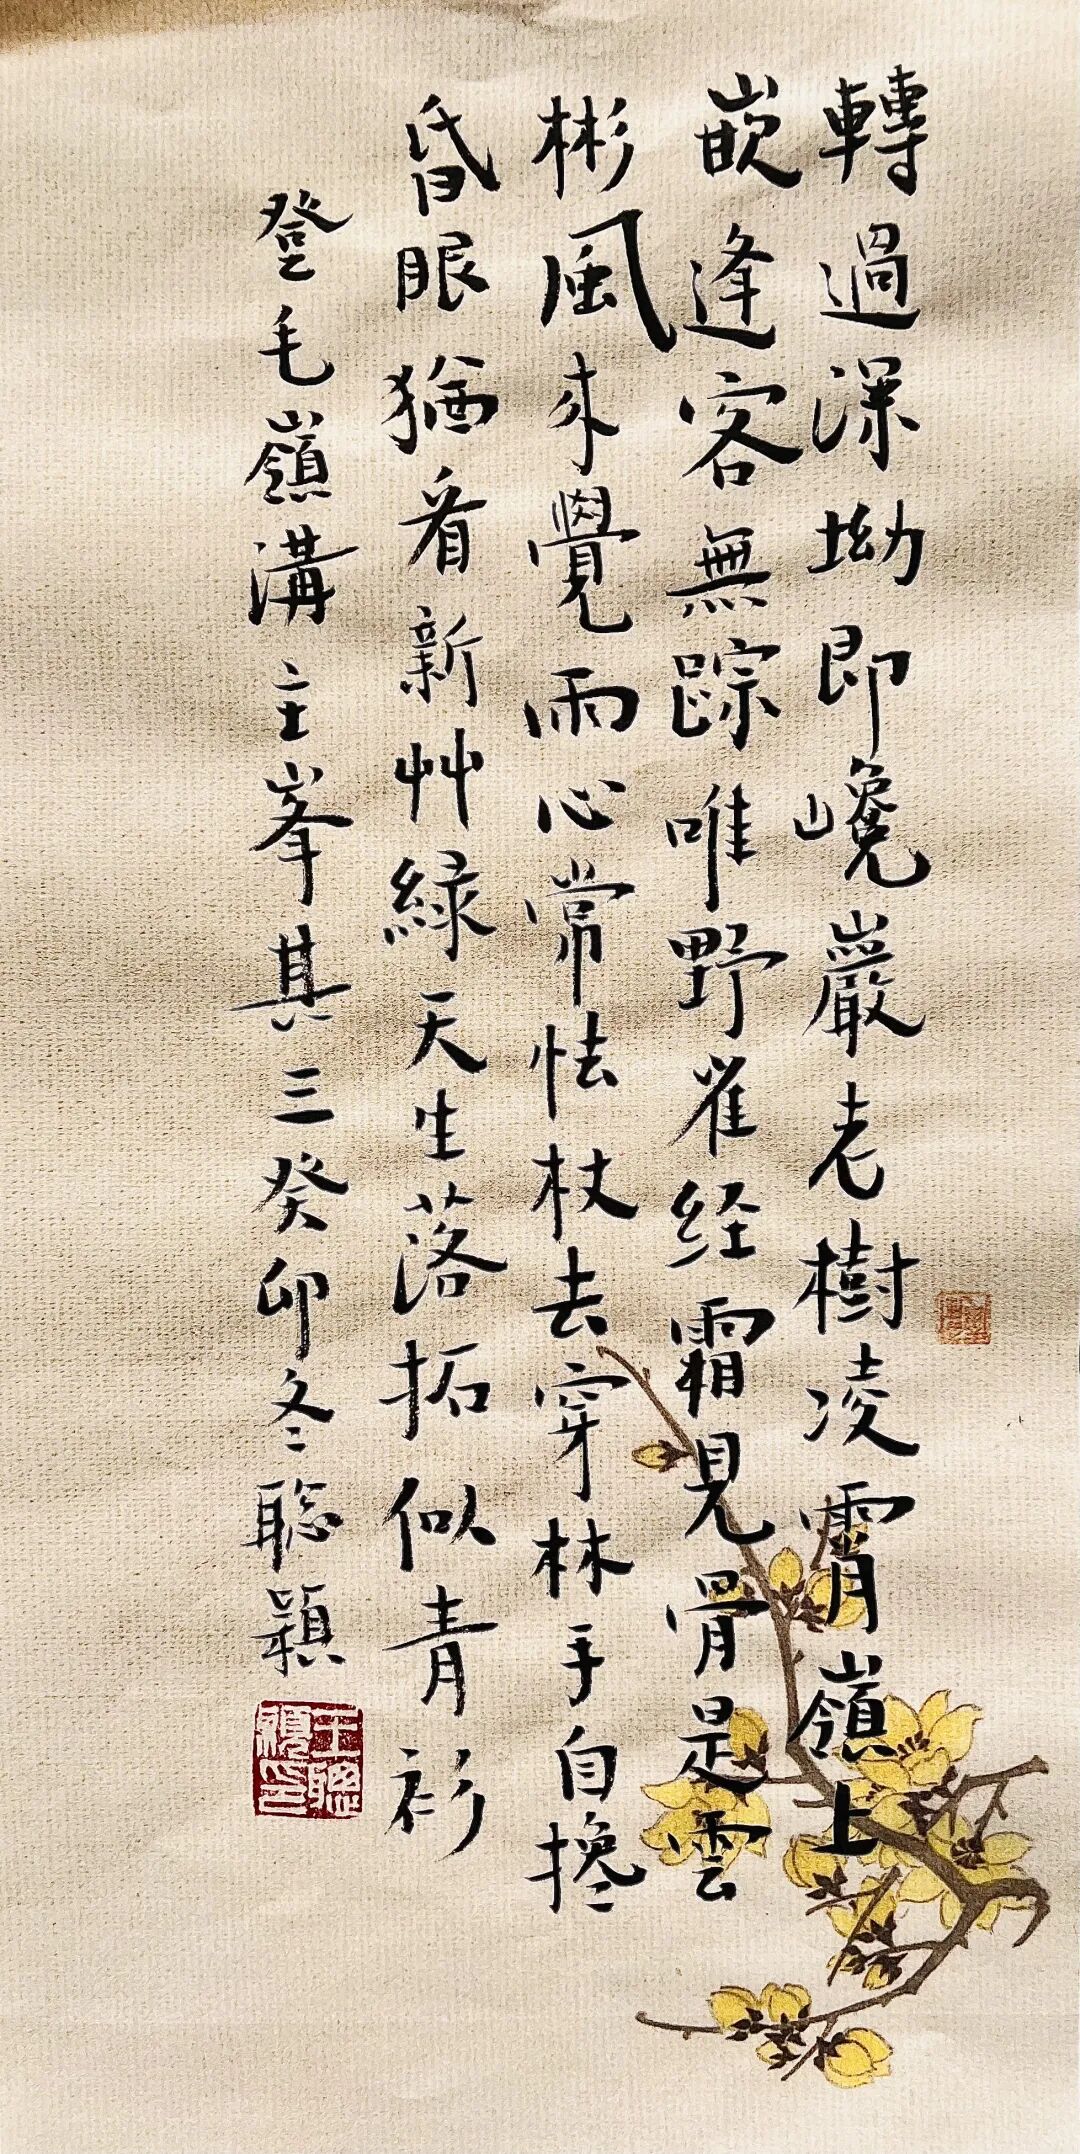 轉過深坳即巉巖老樹凌霄嶺上
嵌逢客無踪唯野雀经霜見骨是雲
彬風來覺雨心常怯杖去穿林手自搀
昏眼猶看新艸緑天生落拓似青衫
登毛嶺溝主峯其三癸卯冬聡穎
王聰穎印